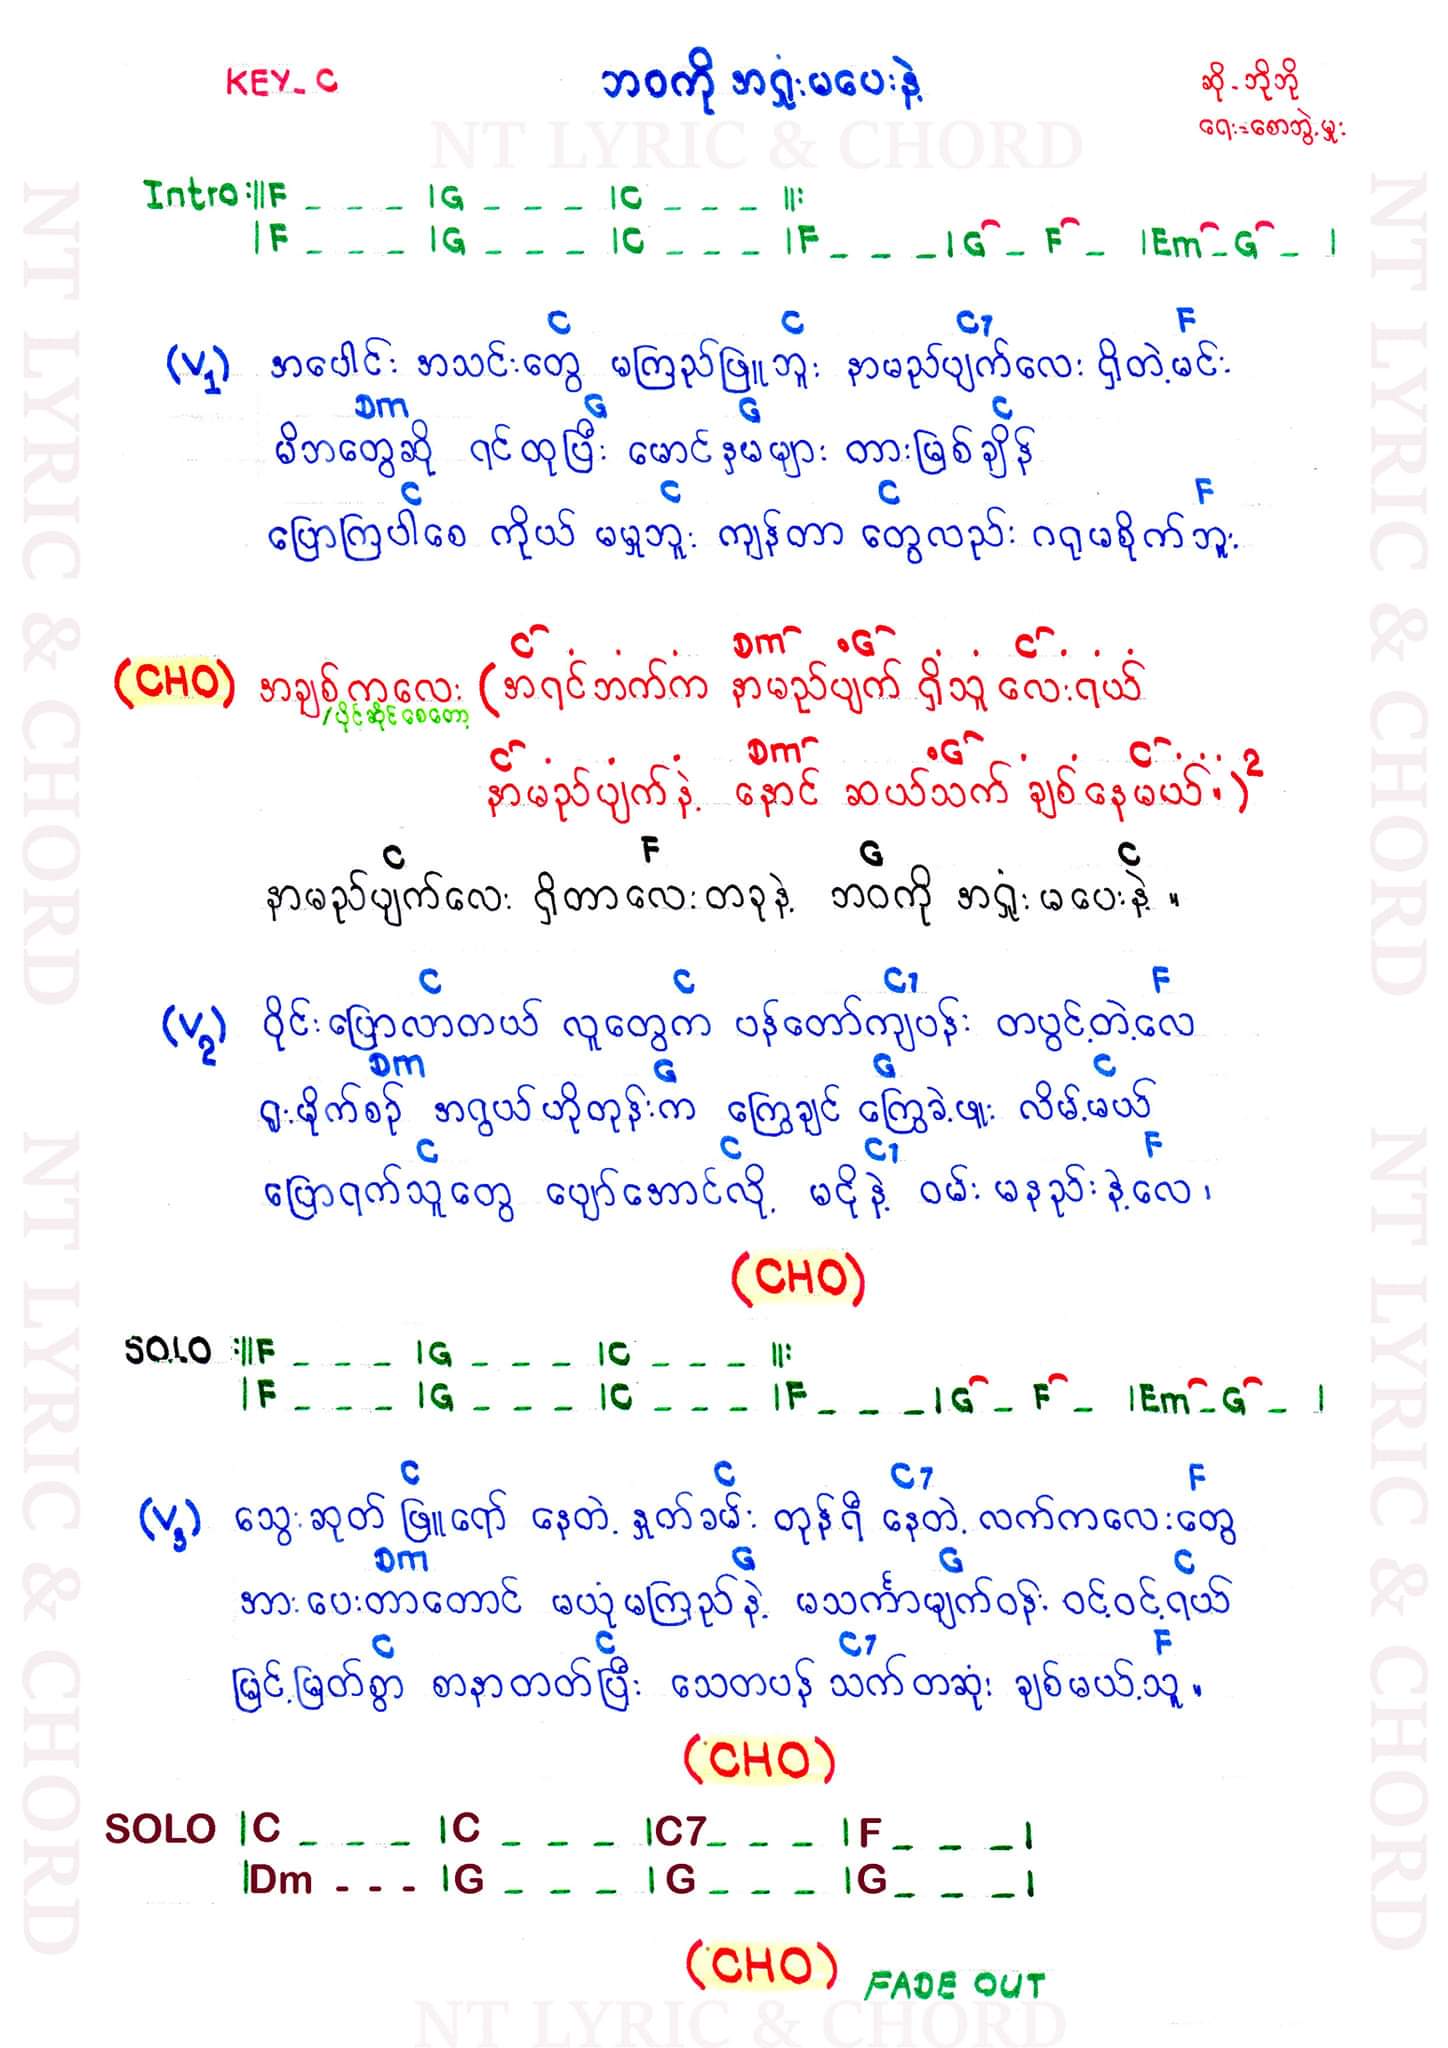 KEY - C
ဘဝကို အရှုံးမပေးနဲ့
ဆို - ဘိုဘို
ရေး = စောဘွဲ့မှူး
NT LYRIC & CHORD
Intro :||F _ _ _ |G _ _ _ |C _ _ _ ||:
|F _ _ _ |G _ _ _ |C _ _ _ |F _ _ _ |G _ F _ |Em _ G _ |
C C C7 F
(V1) အပေါင်း အသင်းတွေ မကြည်ဖြူဘူး နာမည်ပျက်လေး ရှိတဲ့မင်း
Dm G G C
မိဘတွေဆို ရင်ထုပြီး မောင်နှမများ တားမြစ်ချိန်
C C C F
ပြောကြပါစေ ကိုယ် မမှုဘူး ကျန်တာ တွေလည်း ဂရုမစိုက်ဘူး
C Dm G C
(CHO) အချစ်ကလေး (အရင်ဘက်က နာမည်ပျက် ရှိသူ လေးရယ်
/ပိုင်ဆိုင်စေတော့
C Dm G C
နာမည်ပျက်နဲ့ နောင် ဆယ်သက် ချစ်နေမယ်။)2
C F G C
နာမည်ပျက်လေး ရှိတာလေးတခုနဲ့ ဘဝကို အရှုံးမပေးနဲ့ ။
C C C7 F
(V2) ဝိုင်းပြောလာတယ် လူတွေက ပန်တော်ကျပန်း တပွင့်တဲ့လေ
Dm G G C
ရူးမိုက်စဉ် အရွယ်ဟိုတုန်းက ကြွေချင် ကြွေခဲ့ဖူး လိမ့်မယ်
C C C7 F
ပြောရက်သူတွေ ပျော်အောင်လို့ မငိုနဲ့ ဝမ်းမနည်းနဲ့လေ၊
(CHO)
SOLO :||F _ _ _ |G _ _ _ |C _ _ _ ||:
|F _ _ _ |G _ _ _ |C _ _ _ |F _ _ _ |G _ F _ |Em _ G _ |
C C C7 F
(V3) သွေးဆုတ် ဖြူရော် နေတဲ့ နှုတ်ခမ်း တုန်ရီ နေတဲ့ လက်ကလေးတွေ
Dm G G C
အားပေးတာတောင် မယုံမကြည်နဲ့ မသင်္ကာမျက်ဝန်း ဝင့်ဝင့်ရယ်
C C C7 F
မြင့်မြတ်စွာ စာနာတတ်ပြီး သေတပန် သက်တဆုံး ချစ်မယ့်သူ ။
(CHO)
SOLO |C _ _ _ |C _ _ _ |C7 _ _ _ |F _ _ _ |
|Dm - - - |G _ _ _ |G _ _ _ |G _ _ _ |
(CHO) FADE OUT
NT LYRIC & CHORD
NT LYRIC & CHORD
NT LYRIC & CHORD
NT LYRIC & CHORD
NT LYRIC & CHORD